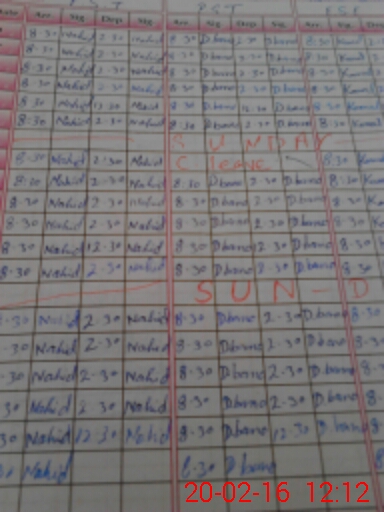 PST
Arr. Sig. Dep. Sig. Arr. Sig. Dep. Sig. Arr. Sig.
8-30 Nahid 2-30 Nahid 8-30 D bano 2-30 D bano 8-30 Kamal
8-30 Nahid 2-30 Nahid 8-30 D bano 2-30 D bano 8-30
8-30 Nahid 2-30 Nahid 8-30 D bano 2-30 D bano 8-30
8-30 Nahid 2-30 Nahid 8-30 D bano 2-30 D bano 8-30
8-30 Nahid 12-30 Nahid 8-30 D bano 12-30 D bano 8-30
8-30 Nahid 2-30 Nahid 8-30 D bano 2-30 D bano 8-30
SUNDAY
8-30 Nahid 2-30 Nahid C leave 8-30
8-30 Nahid 2-30 Nahid 8-30 D bano 2-30 D bano 8-30
8-30 Nahid 2-30 Nahid 8-30 D bano 2-30 D bano 8-30
8-30 Nahid 2-30 Nahid 8-30 D bano 2-30 D bano 8-30
8-30 Nahid 12-30 Nahid 8-30 D bano 12-30 D bano 8-30
8-30 Nahid 2-30 Nahid 8-30 D bano 2-30 D bano 8-30
SUN-D
8-30 Nahid 2-30 Nahid 8-30 D bano 2-30 D bano 8-30
-30 Nahid 2-30 Nahid 8-30 D bano 2-30 D bano 8-30
-30 Nahid 2-30 Nahid 8-30 D bano 2-30 D bano 8-
30 Nahid 2-30 Nahid 8-30 D bano 2-30 D bano 8-
30 Nahid 12-30 Nahid 8-30 D bano 12-30 D bano 8-
30 Nahid 8-30 D bano 8
20-02-16 12:12